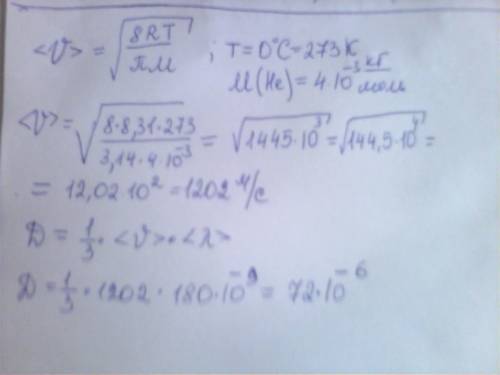 <V> = √(8RT/πM) ; T=0°C=273K
M(He)=4·10⁻³ кг/моль
<V> = √(8·8,31·273/3,14·4·10⁻³) = √1445·10³ = √144,5·10⁴ =
= 12,02·10² = 1202 м/с
D = 1/3·<V>·<λ>
D = 1/3·1202·180·10⁻⁹ = 72·10⁻⁶